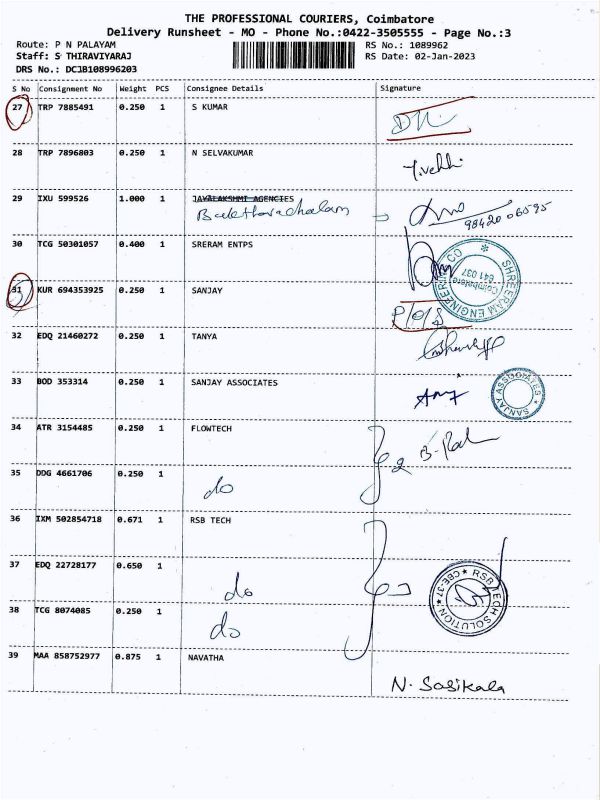 THE PROFESSIONAL COURIERS, Coimbatore
Delivery Runsheet - MO - Phone No.:0422-3505555 - Page No.:3
Route: P N PALAYAM RS No.: 1089962
Staff: S THIRAVIYARAJ RS Date: 02-Jan-2023
DRS No.: DCJB108996203
S No Consignment No Weight PCS Consignee Details Signature
27 TRP 7885491 0.250 1 S KUMAR
28 TRP 7896803 0.250 1 N SELVAKUMAR
29 IXU 599526 1.000 1 JAYALAKSHMI AGENCIES
98420 06595
30 TCG 50301057 0.400 1 SRERAM ENTPS
SHREERAM ENGINEERING CO
Coimbatore
641 037
31 KUR 694353925 0.250 1 SANJAY
32 EDQ 21460272 0.250 1 TANYA
33 BOD 353314 0.250 1 SANJAY ASSOCIATES
SANJAY ASSOCIATES
34 ATR 3154485 0.250 1 FLOWTECH
35 DDG 4661706 0.250 1 do
36 IXM 502854718 0.671 1 RSB TECH
37 EDQ 22728177 0.650 1 do
RSB TECH SOLUTION CBE-37
38 TCG 8074085 0.250 1 do
39 MAA 858752977 0.875 1 NAVATHA
N. Sasikala